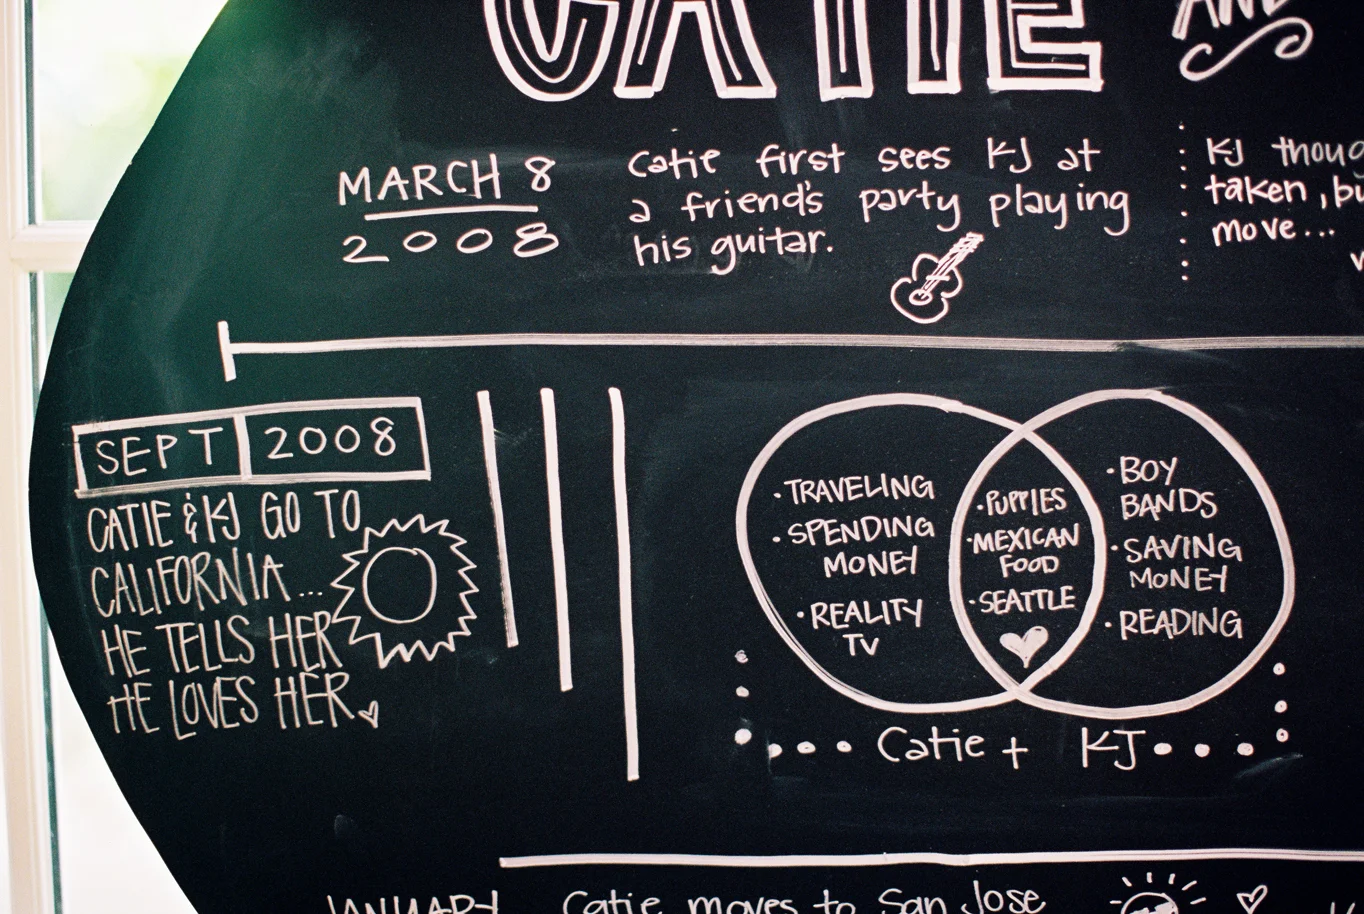 CATIE AND
MARCH 8
2008
Catie first sees KJ at
a friend's party playing
his guitar.
KJ
taken, bu
move...
SEPT 2008
CATIE & KJ GO TO
CALIFORNIA...
HE TELLS HER
HE LOVES HER
• TRAVELING
• SPENDING
MONEY
• REALITY
TV
• PUPPIES
• MEXICAN
FOOD
• SEATTLE
• BOY
BANDS
• SAVING
MONEY
• READING
Catie + KJ
JANUARY
Catie moves to San Jose